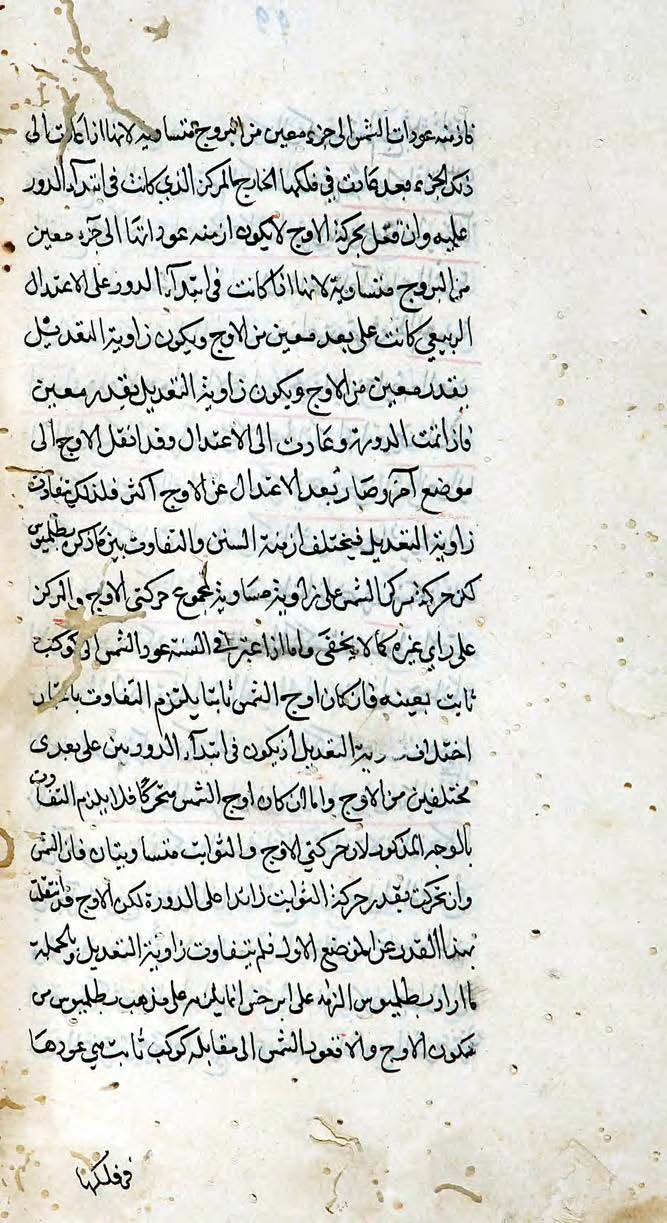 فازمنه عودات الشمس الى جزء معين من البروج متساويه لانها اذا عادت الى
ذلك الجزء فعد عادت في فلكها الخارج المركز الذي كانت في ابتداء الدور
عليه وان قيل بحركة الاوج لا يكون ازمنه عوداتها الى جزء معين
من البروج متساوية لانها اذا كانت في ابتداء الدور على الاعتدال
الربيعي كانت على بعد معين من الاوج ويكون زاوية التعديل
بقدر معين من الاوج ويكون زاوية التعديل بقدر معين
فاذا تمت الدورة وعادت الى الاعتدال وقد انتقل الاوج الى
موضع آخر وصار بعد الاعتدال عن الاوج اكثر فلذلك تفاوت
زاوية التعديل فيختلف ازمنة السنن والتفاوت بين ما ذكره بطلميوس
لكن حركة مركز الشمس على زاوية مساوية لمجموع حركتي الاوج والمركز
على راي غيره كما لا يخفى واما اذا اعتبر في السنة عود الشمس الى كوكب
ثابت بعينه فان كان اوج الشمس ثابتا يلتزم التفاوت باعتبار
اختلاف زاوية التعديل اذ يكون في ابتداء الدورين على بعدى
مختلفين من الاوج واما ان كان اوج الشمس متحركا فلا يلزم التفاوت
بالوجه المذكور لان حركتي الاوج والثوابت متساويتان فان الشمس
وان تحركت بقدر حركة الثوابت زائدا على الدورة لكن الاوج قد انتقلت
بهذا القدر عن الموضع الاول فلم يتفاوت زاوية التعديل وبالجملة
ما اراد بطلميوس الزامه على ابرخس انما يلزمه على مذهب بطلميوس من
سكون الاوج والا فعود الشمس الى مقابله كوكب ثابت هي عودها
في فلكها